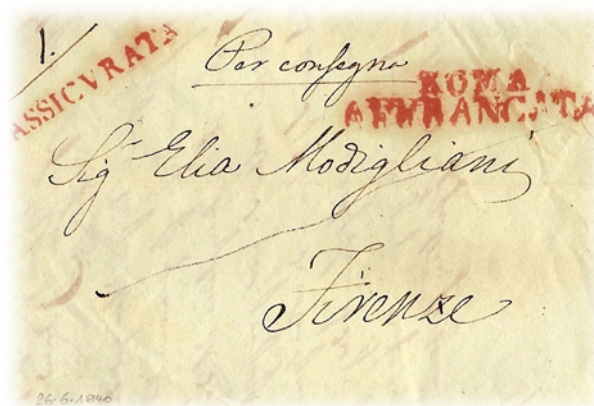 1.
ASSICVRATA
Per consegna
ROMA
AFFRANCATA
Sigr Elia Modigliani
Firenze
26·6·1840